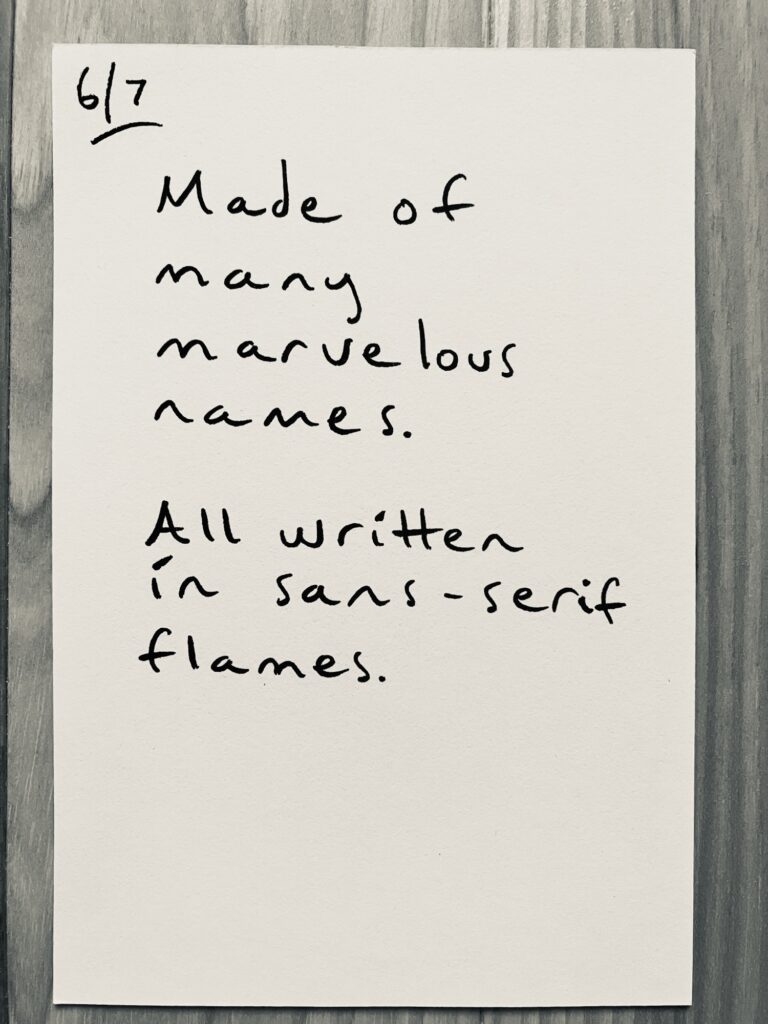 6/7
Made of
many
marvelous
names.
All written
in sans-serif
flames.